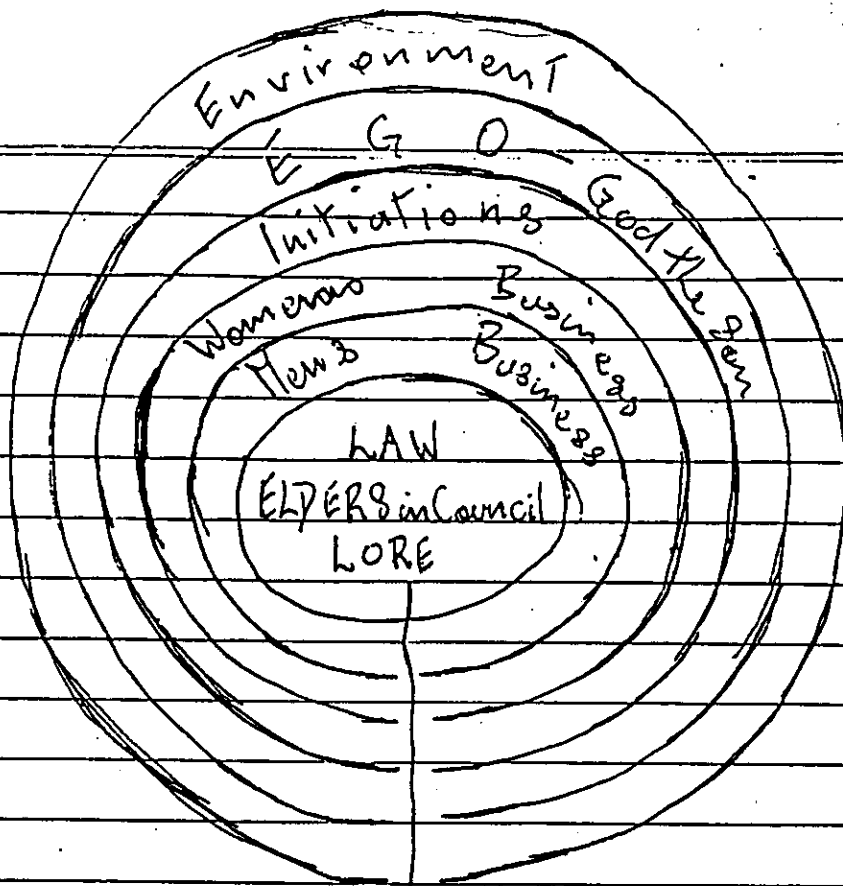 Environment
EGO - God the
Initiations
Womens Business
Mens Business
LAW
ELDERS in Council
LORE